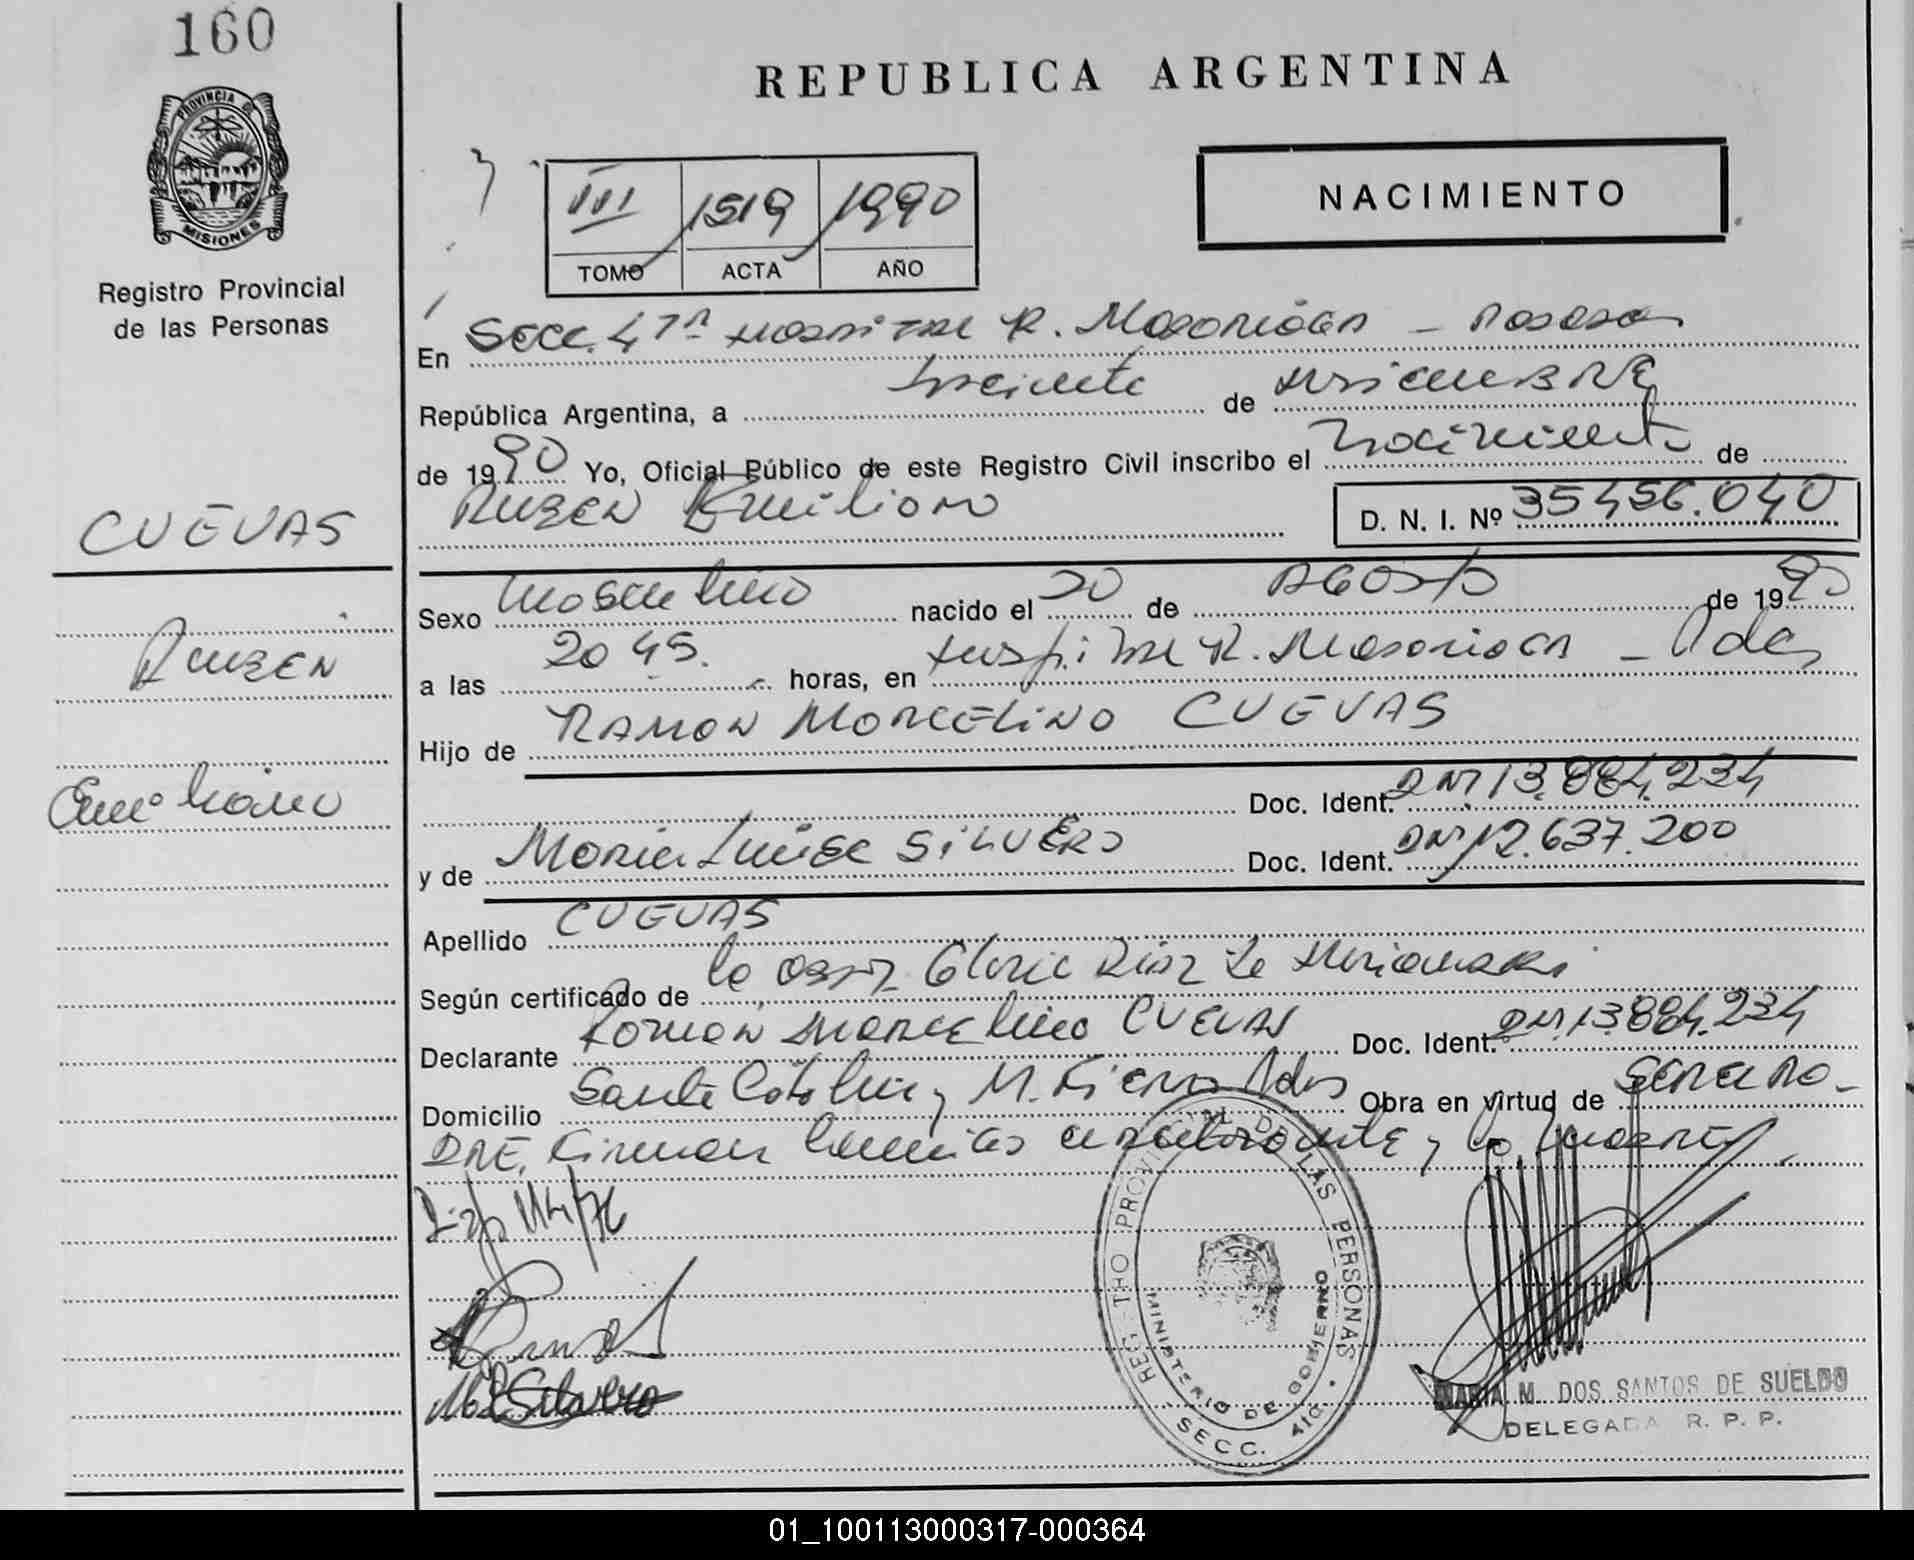 160
PROVINCIA DE
MISIONES
Registro Provincial
de las Personas
REPUBLICA ARGENTINA
III 1519 1990
TOMO ACTA AÑO
NACIMIENTO
En Secc. 4ta Hospital R. Madariaga - Posadas
República Argentina, a de
de 1990 Yo, Oficial Público de este Registro Civil inscribo el Nacimiento de
Ruben Emiliano
D. N. I. Nº 35456.040
CUEVAS
Ruben
Emiliano
Sexo Masculino nacido el 20 de Agosto de 1990
a las 20 45. horas, en Hospital R. Madariaga - Pdas
Hijo de RAMON MARCELINO CUEVAS
Doc. Ident. DNI 13.884.234
y de Maria Luisa SILVERO Doc. Ident. DNI 12.637.200
Apellido CUEVAS
Según certificado de la Gloria Diaz de
Declarante Ramon Marcelino CUEVAS Doc. Ident. DNI 13.884.234
Domicilio Santa Catalina y M. Fierro Pdas Obra en virtud de ser el PA-
DRE. Firman y la madre
REGISTRO PROVINCIAL DE LAS PERSONAS
MINISTERIO DE GOBIERNO
SECC. 4ta.
M L Silvero
MARIA M. DOS SANTOS DE SUELDO
DELEGADA R. P. P.
01_100113000317-000364